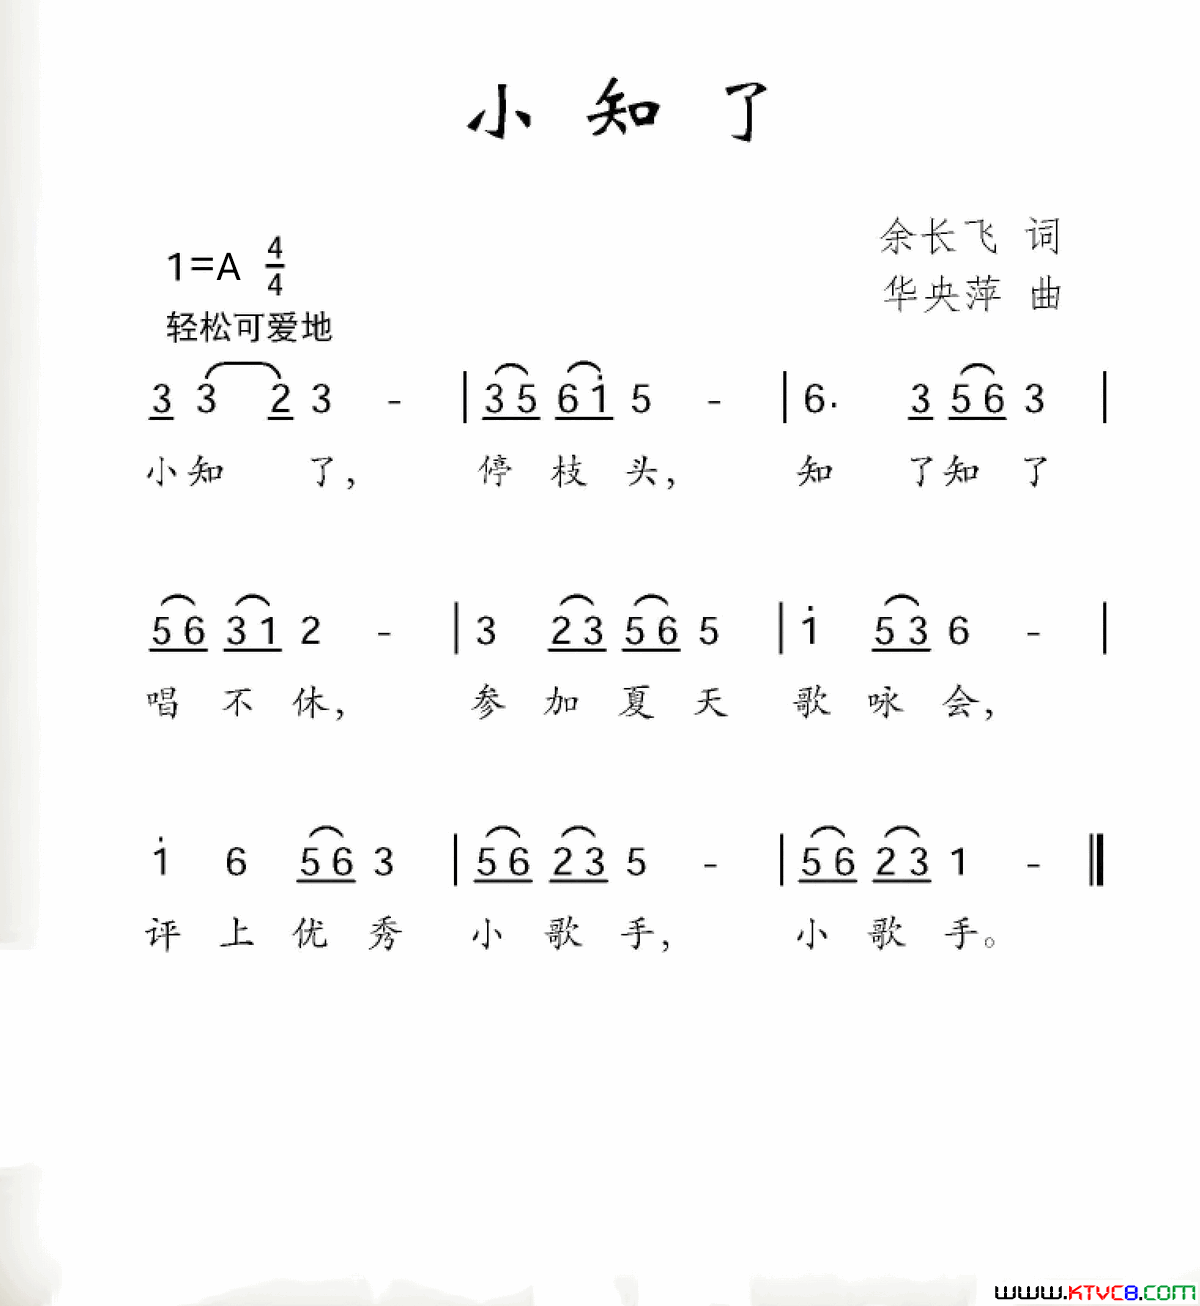 小知了
余长飞 词
1=A 4/4
华央萍 曲
轻松可爱地
3 3 2 3 - | 3 5 6 i 5 - | 6. 3 5 6 3 |
小知 了, 停 枝 头, 知 了知 了
5 6 3 1 2 - | 3 2 3 5 6 5 | i 5 3 6 - |
唱 不 休, 参 加 夏 天 歌 咏 会,
i 6 5 6 3 | 5 6 2 3 5 - | 5 6 2 3 1 - ‖
评 上 优 秀 小 歌 手, 小 歌 手。
www.KTVC8.COM